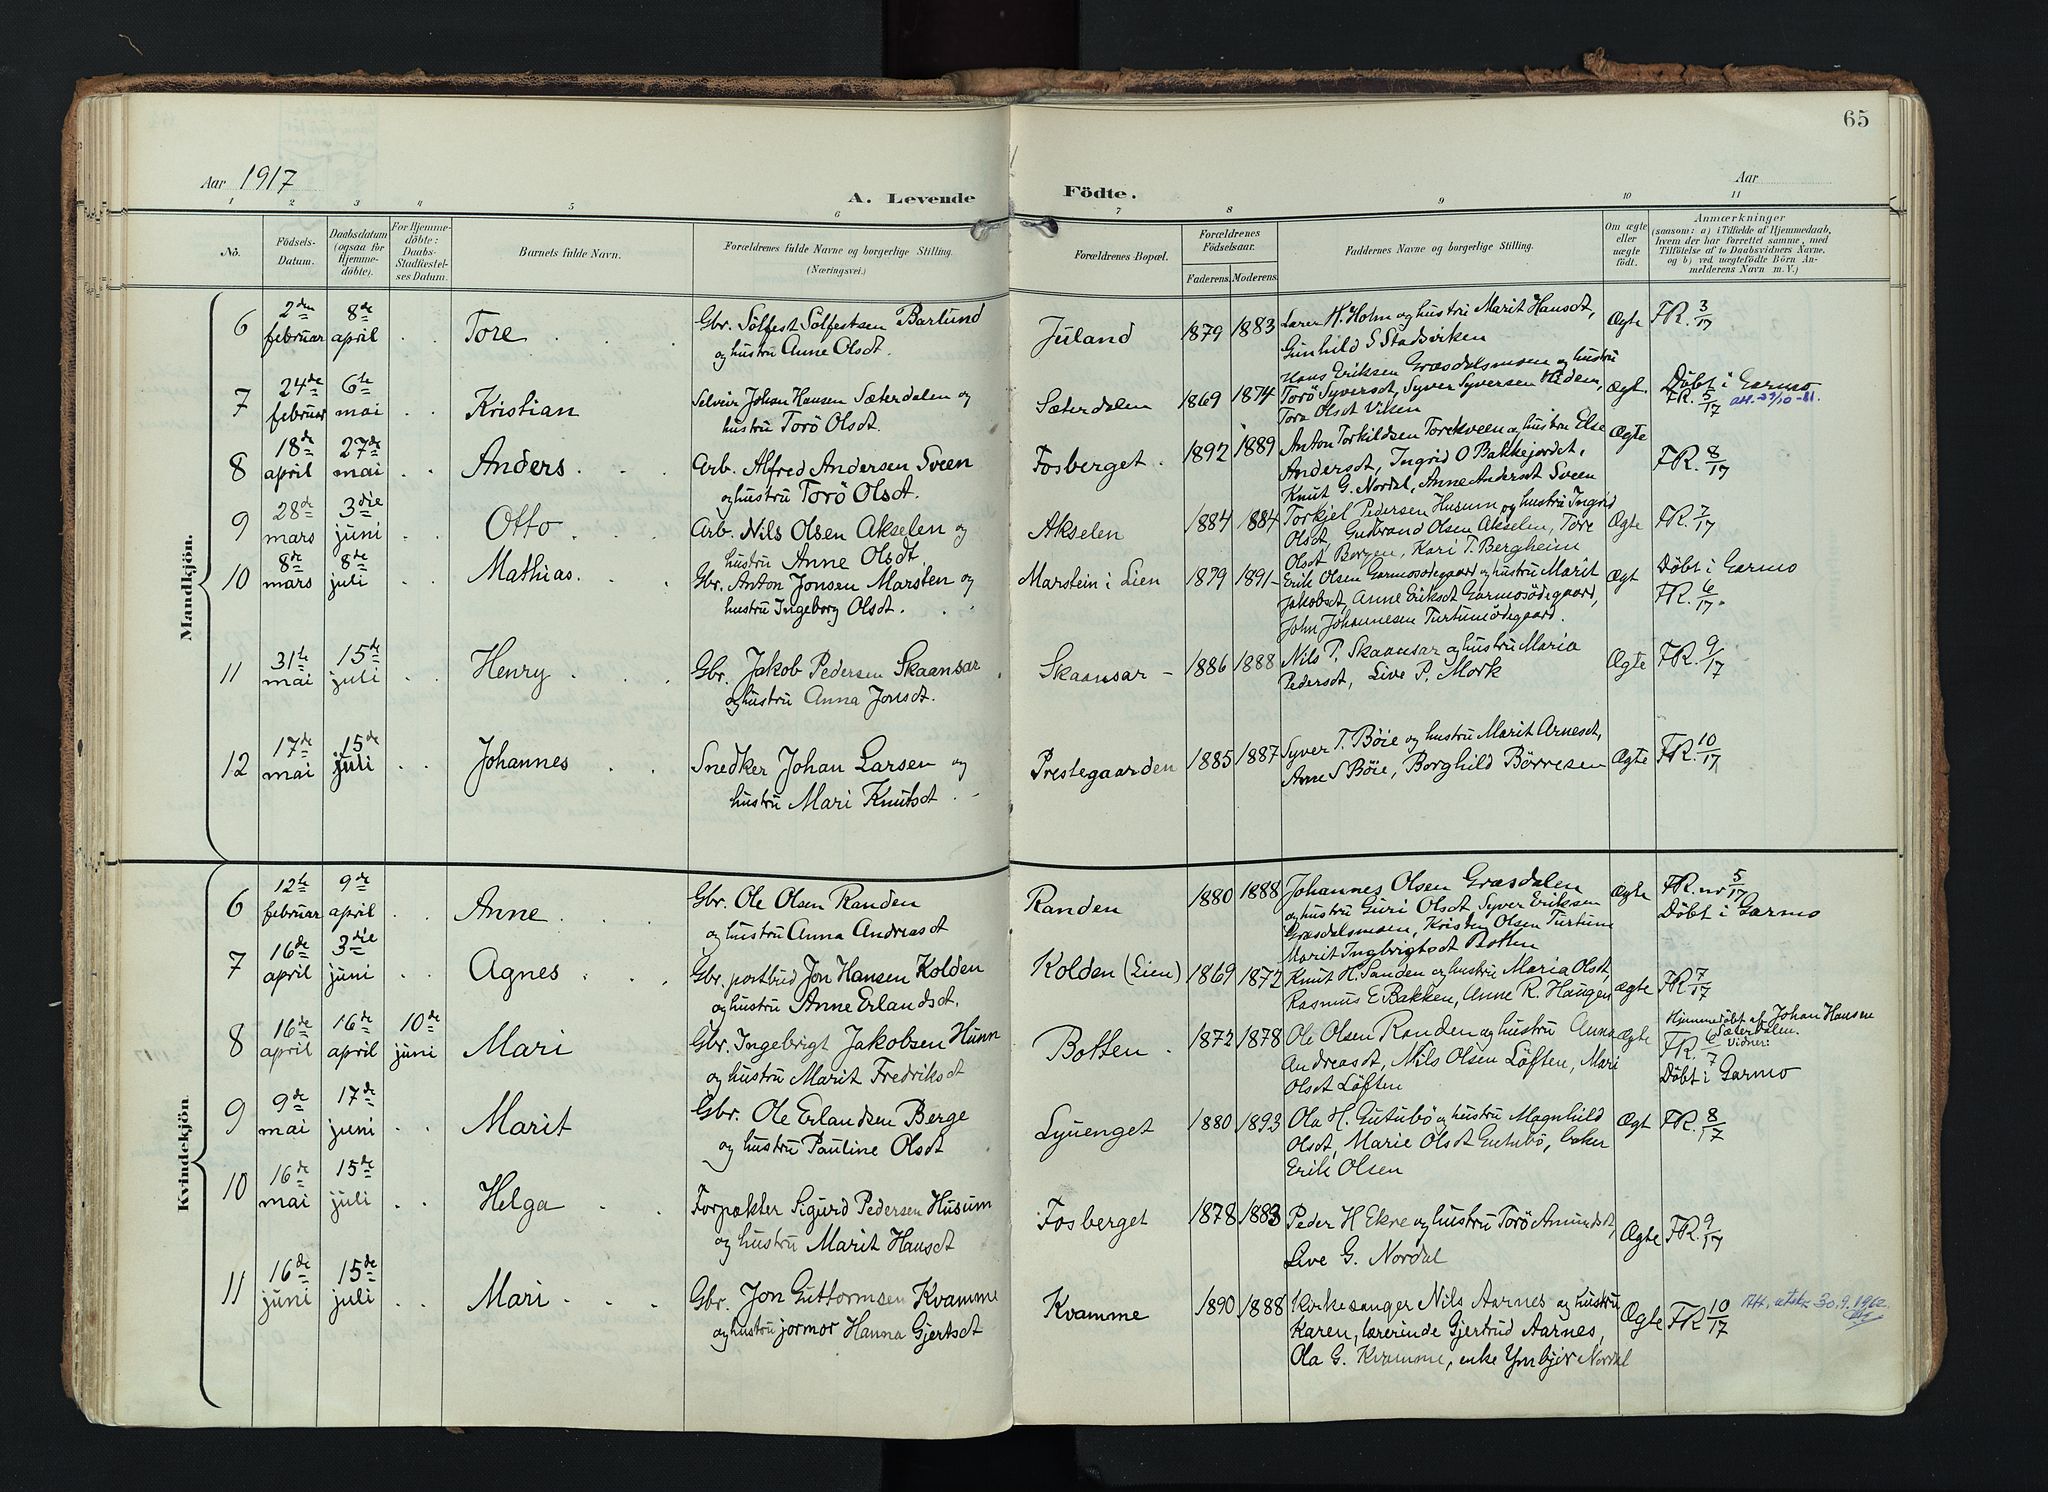 65
Aar 1917
A. Levende Födte.
Aar
1 2 3 4 5 6 7 8 9 10 11
Nö.
Födsels-
Datum.
Daabsdatum
(ogsaa for
Hjemme-
döbte).
For Hjemme-
döbte:
Daabs-
Stadfæstel-
ses Datum.
Barnets fulde Navn.
Forældrenes fulde Navne og borgerlige Stilling.
(Næringsvei.)
Forældrenes Bopæl.
Forældrenes
Födselsaar.
Faderens. Moderens.
Faddernes Navne og borgerlige Stilling.
Om ægte
eller
uægte
födt.
Anmærkninger
(saasom: a) i Tilfælde af Hjemmedaab,
hvem der har forrettet samme, med
Tilföielse af to Daabsvidners Navne,
og b) ved uægtefödte Börn An-
melderens Navn m. V.)
Mandkjön.
6 2den februar 8de april Tore
Gbr. Sölfest Sölfestsen Barlund
og hustru Anne Olsdt.
Juland 1879 1883
Lærer H. Holm og hustru Marit Hansdt,
Gunhild S Stadsviken
Ægte FR. 3/17
7 24de februar 6te mai Kristian
Selveier Johan Hansen Sæterdalen og
hustru Torö Olsdt.
Sæterdalen 1869 1874
Hans Eriksen Græsdalsmoen og hustru
Torö Syversdt, Syver Syversen Hidem,
Tora Olsdt Viken
Ægt Döbt i Garmo
FR. 5/17
8 18de april 27de mai Anders
Arb. Alfred Andersen Sveen
og hustru Torö Olsdt.
Fosberget 1892 1889
Anton Torkildsen Torekveen og hustru Else
Andersdt, Ingrid O Bakkejordet,
Knut G. Nordal, Anne Andersdt Sveen
Ægte FR. 8/17
9 28de mars 3die juni Otto
Arb. Nils Olsen Akselen og
hustru Anne Olsdt
Akselen 1884 1884
Torkjel Pedersen Husum og hustru Ingrid
Olsdt, Gudbrand Olsen Akselen, Tore
Olsdt Borgen, Kari T. Bergheim
Ægte FR. 7/17
10 8de mars 8de juli Mathias
Gbr. Anton Jonsen Marsten og
hustru Ingeborg Olsdt.
Marstein i Lien 1879 1891
Erik Olsen Garmosödegaard og hustru Marit
Jakobsdt, Anne Eriksdt Garmosödegaard,
John Johannesen Turtumödegaard.
Ægt Döbt i Garmo
FR. 6/17.
11 31te mai 15de juli Henry
Gbr. Jakob Pedersen Skaansar
og hustru Anna Jonsdt.
Skaansar 1886 1888
Nils P. Skaansar og hustru Maria
Pedersdt, Live P. Mork
Ægte FR. 9/17
12 17de mai 15de juli Johannes
Snedker Johan Larsen og
hustru Mari Knutsdt
Prestegaarden 1885 1887
Syver T. Böie og hustru Marit Arnesdt,
Arne S Böie, Borghild Börresen
Ægte FR. 10/17
Kvindekjön
6 12te februar 9de april Anne
Gbr. Ole Olsen Randen
og hustru Anna Andreasdt
Randen 1880 1888
Johannes Olsen Græsdalen
og hustru Guri Olsdt Syver Eriksen
Græsdalsmoen, Kristen Olsen Turtum
Marit Ingebrigtsdt Botten
Ægte FR. nr 5/17
Döbt i Garmo
7 16de april 3die juni Agnes
Gbr. postbud Jon Hansen Kolden
og hustru Anne Erlandsdt.
Kolden (Lien) 1869 1872
Knut H. Sanden og hustru Maria Olsdt,
Rasmus E Bakken, Anne R. Haugen
ægte FR 7/17
8 16de april 16de april 10de juni Mari
Gbr. Ingebrigt Jakobsen Hunn
og hustru Marit Fredriksdt
Botten 1872 1878
Ole Olsen Randen og hustru Anna
Andreasdt, Nils Olsen Löften, Mari
Olsdt Löften
Ægte Hjemmedöbt af Johan Hansen
Sæterdalen.
FR. 6/7 Vidner:
Döbt i Garmo
9 9de mai 17de juni Marit
Gbr. Ole Erlandsen Berge
og hustru Pauline Olsdt
Lyuenget 1880 1893
Ola H. Gutubö og hustru Magnhild
Olsdt, Marie Olsdt Gutubö, baker
Erik Olsen
Ægt FR. 8/17
10 16de mai 15de juli Helga
Forpakter Sigurd Pedersen Husum
og hustru Marit Hansdt
Fosberget 1878 1883
Peder H Ekre og hustru Torö Amundsdt,
Live G. Nordal
Ægte FR. 9/17
11 16de juni 15de juli Mari
Gbr. Jon Guttormsen Kvamme
og hustru jormor Hanna Gjertsdt
Kvamme 1890 1888
Kirkesanger Nils Aarnes og hustru
Karen, lærerinde Gjertrud Aarnes,
Ola G. Kvamme, enke Ymbjör Nordal
Ægte FR 10/17 Att. utstr. 30.9.1962.